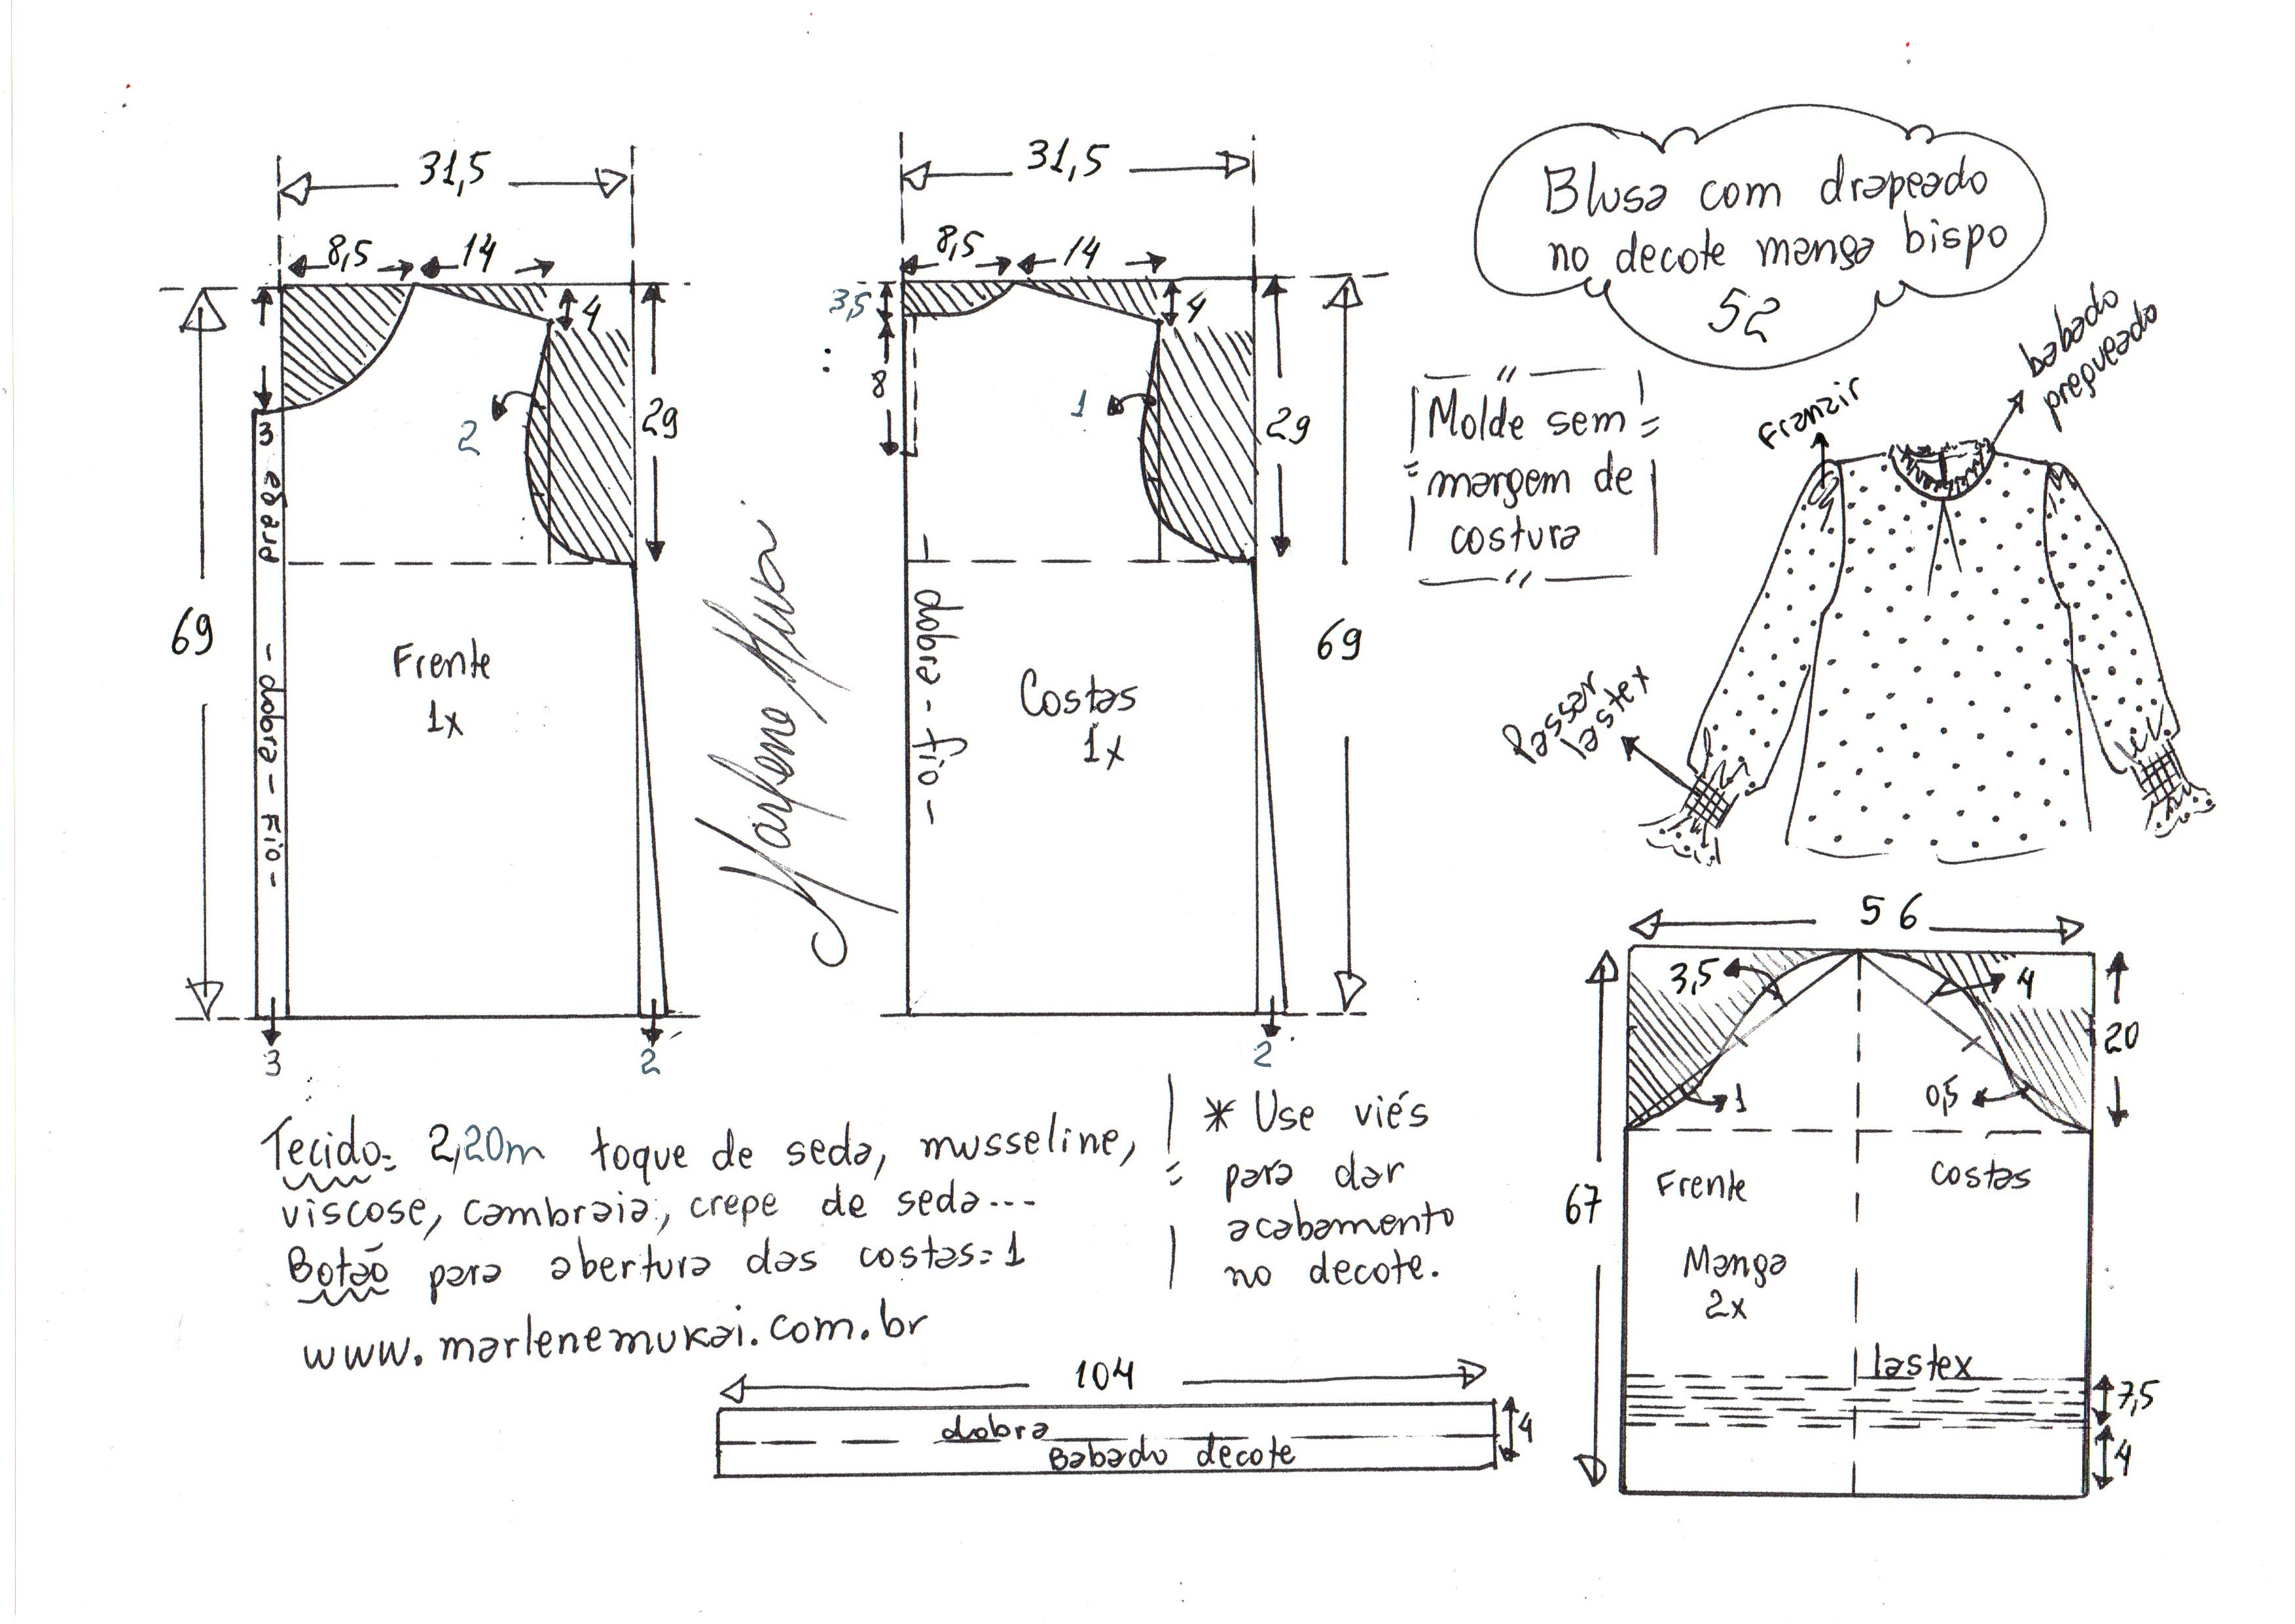 31,5
8,5
14
4
29
2
3
prega - dobra - Fio -
69
Frente
1x
3
2
31,5
8,5
14
3,5
4
8
1
29
dobra - fio -
69
Costas
1x
2
Blusa com drapeado
no decote manga bispo
52
Molde sem
margem de
costura
Franzir
babado
pregueado
Passar
lastex
56
3,5
4
20
1
0,5
Frente
costas
67
Manga
2x
lastex
7,5
4
Tecido= 2,20m toque de seda, musseline,
viscose, cambraia, crepe de seda---
Botão para abertura das costas=1
www.marlenemukai.com.br
* Use viés
para dar
acabamento
no decote.
104
dobra
Babado decote
4